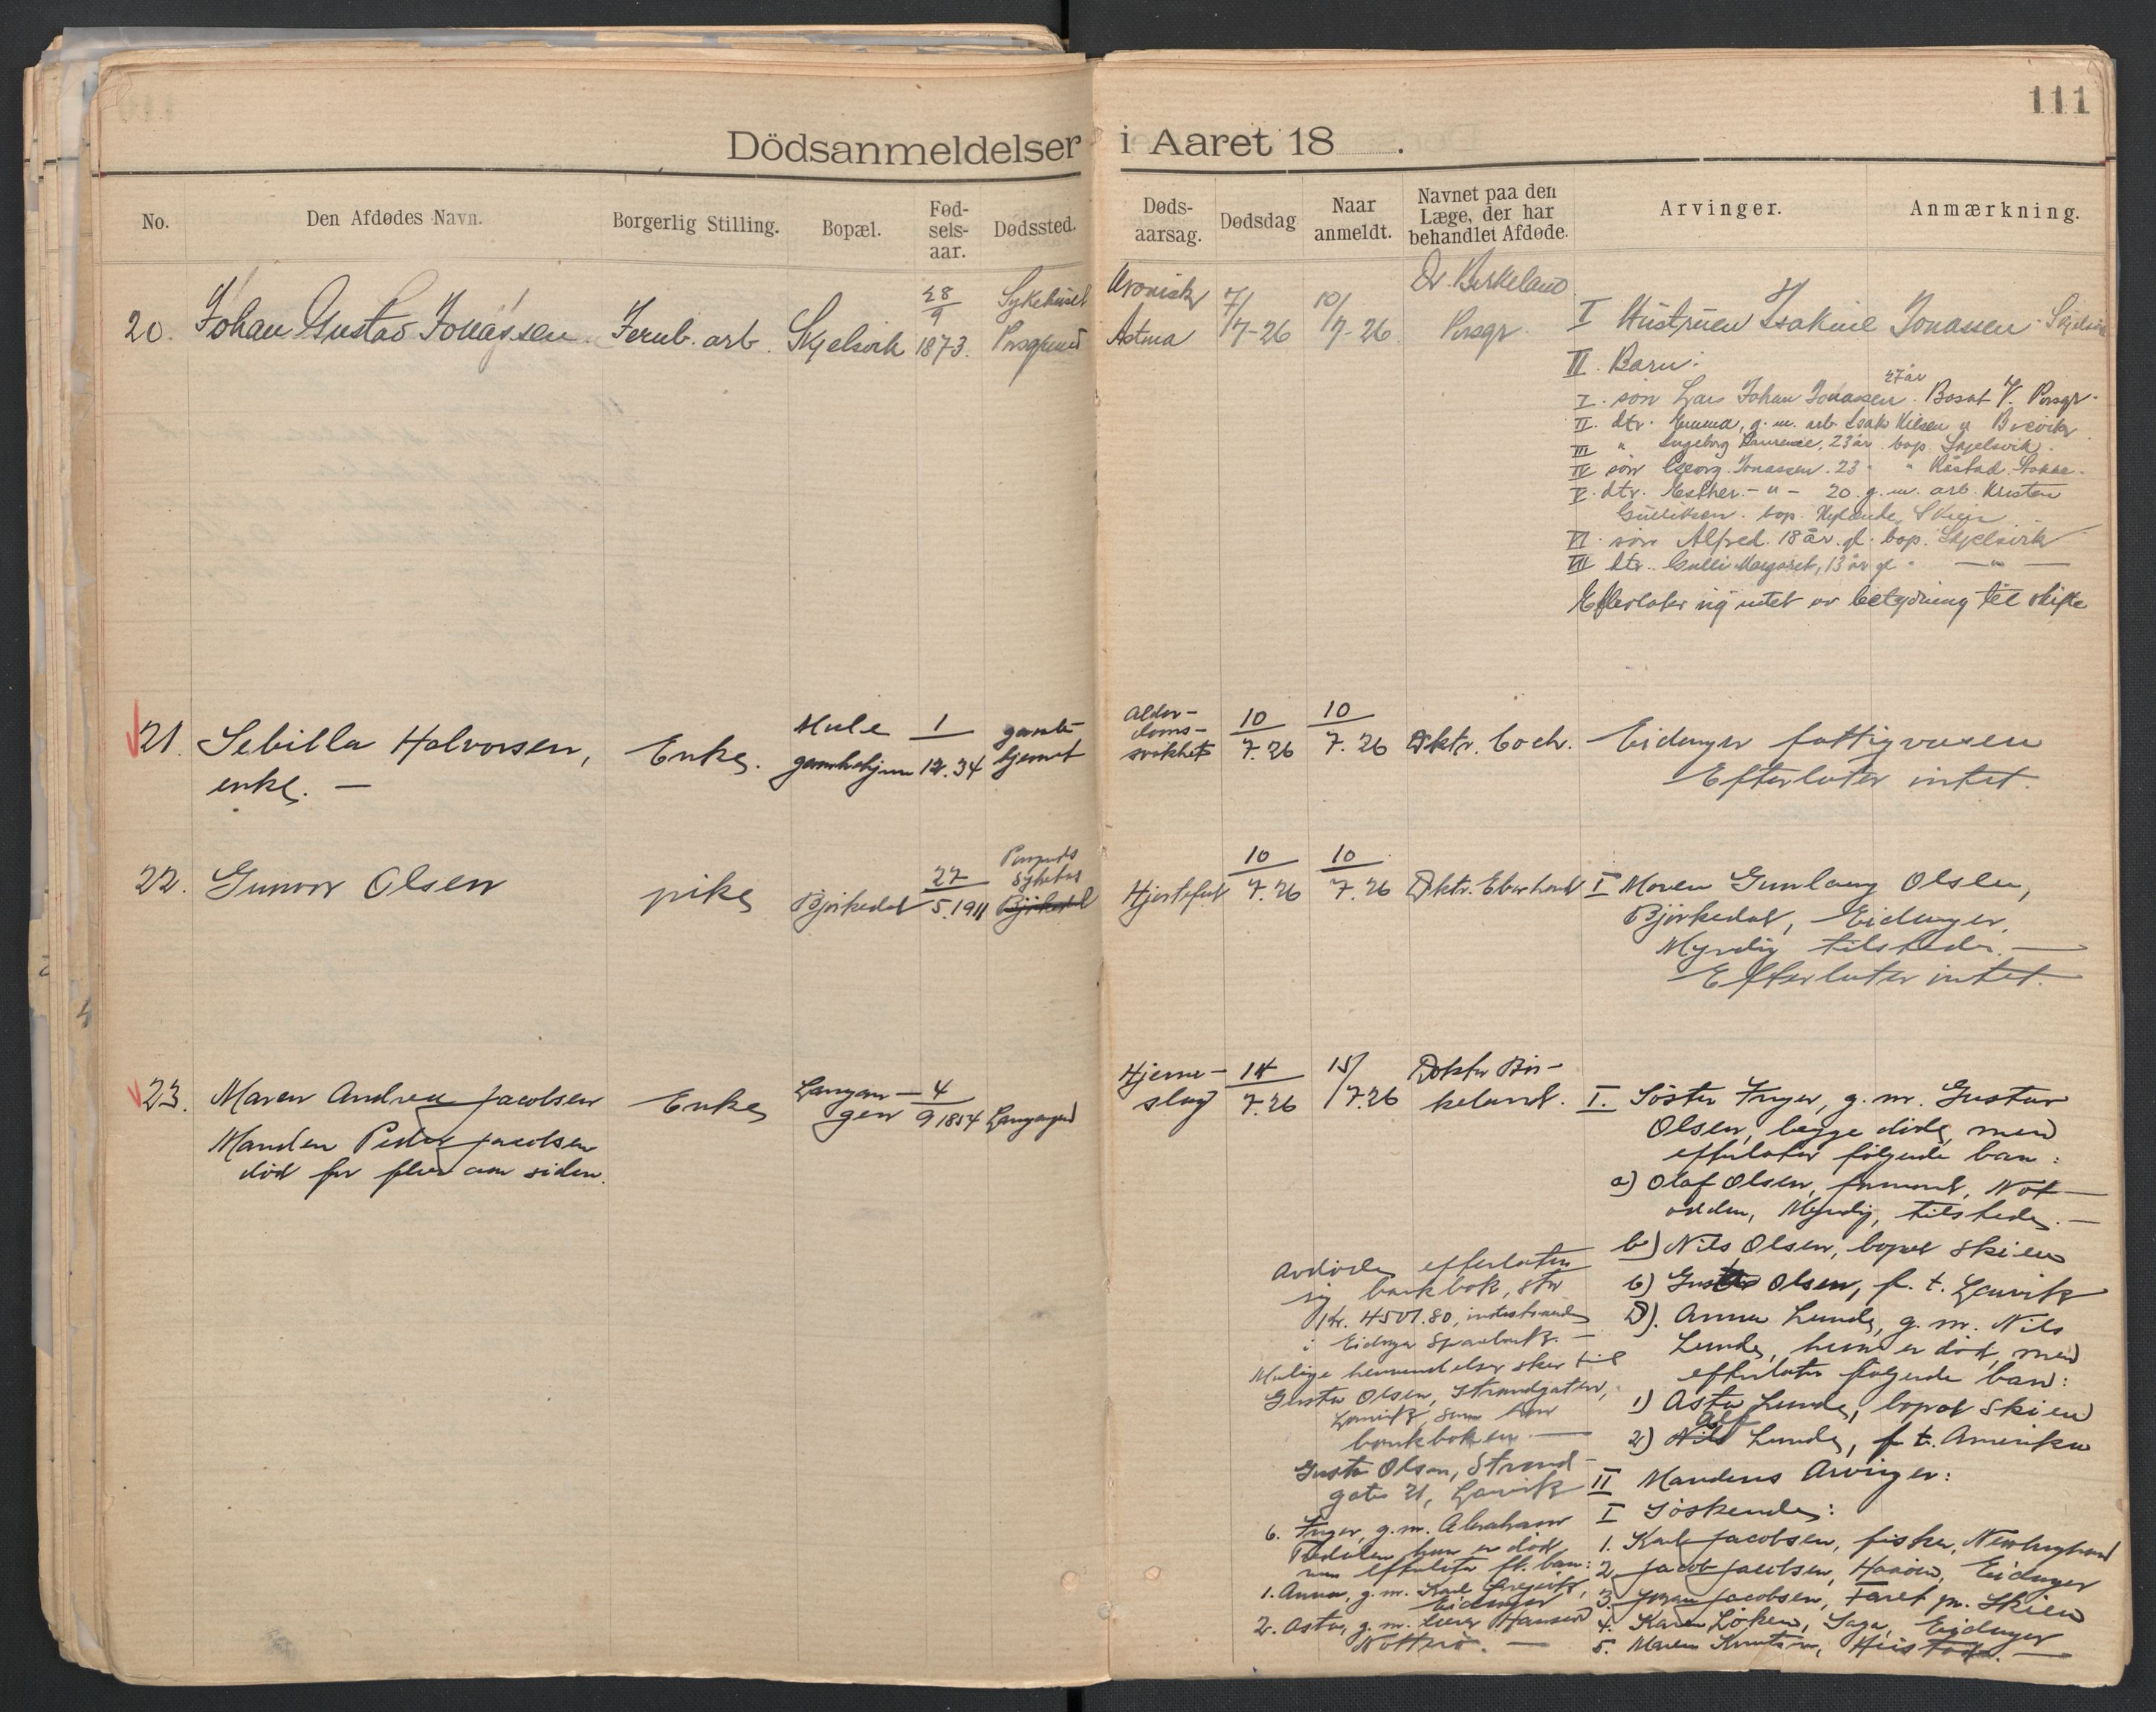 111
Dödsanmeldelser i Aaret 18 .
No. Den Afdødes Navn. Borgerlig Stilling. Bopæl. Fød-sels-aar. Dødssted. Døds-aarsag. Dødsdag Naar anmeldt. Navnet paa den Læge, der har behandlet Afdøde. Arvinger. Anmærkning.
20. Johan Gustav Jonassen Jernb. arb. Skjelsvik 28/9 1873. Sykehuset Porsgrund
Kronisk Astma 7/7-26 10/7-26 Dr. Birkeland Porsgr.
I Hustruen Isakine Jonassen Skjelsvik
II. Barn:
I. sön Lars Johan Jonassen 27 år Bosat V. Porsgr.
II. dtr. Emma, g. m. arb. Isak Nilsen Brevik
III " Ingeborg Laurense, 23 år bop. Skjelsvik.
IV sön Georg Jonassen. 23 " " Råstad Stokke.
V. dtr. Esther - " - 20. g. m. arb. Kristen
Gulliksen. bop. Nylende, Skien
VI. sön Alfred. 18 år. gl. bop. Skjelsvik
VII dtr. Gulli Margaret, 13 år gl. — " —
Efterlater sig intet av betydning til skifte
21. Sebilla Halvorsen, Enke. Mule gamlehjem 1/12.34 gamle-hjemet
enke. —
Alder-doms-svakhet 10/7.26 10/7.26 Dktr. Coch. Eidanger fattigvesen
Efterlater intet.
22. Gunvor Olsen pike Bjørkedal 27/5.1911 Porsgrunds Sykehus Bjørkedal
Hjertefeil 10/7.26 10/7.26 Dktr. Eberhard I Moren Gunlaug Olsen,
Bjørkedal, Eidanger.
Myndig tilstede. —
Efterlater intet.
23. Maren Andrea Jacobsen Enke Langan-gen 4/9 1854 Langangen
Manden Peder Jacobsen
död for flere aar siden.
Hjerne-slag 14/7.26 15/7.26 Doktor Bir-keland.
I. Söster Inger, g. m. Gustav
Olsen, begge döde, men
efterlater fölgende barn:
a) Olaf Olsen, formand, Not-
odden, Myndig, tilstede. —
b) Nils Olsen, bopæl Skien
c) Gustav Olsen, f. t. Larvik
D). Anna Lunde, g. m. Nils
Lunde, hun er död, men
efterlater fölgende barn:
1) Asta Lunde, bopæl Skien
2) Nils Alf Lunde, f. t. Amerika
II Mandens Arvinger:
I Söskende:
1. Karl Jacobsen, fisker, Nevlunghavn
2. Jacob Jacobsen, Haaöen, Eidanger
3. Johan Jacobsen, Faret pr. Skien
4. Karen Löken, Saga, Eidanger
5. Maren Knutsen,
Avdöde efterlater
sig bankbok, stor
Kr. 4501.80, indestaaende
i Eidanger Sparebank. —
Mulige henvendelser sker til
Gustav Olsen, Strandgaten,
Larvik, som har
bankboken. —
Gustav Olsen, Strand-
gate 21, Larvik
6. Inger, g.m. Abraham
hun er död
men efterlater fl. barn:
1. Anna, g. m. Karl
Eidanger
2. Asta, g. m. Hansen
Nötterö. —